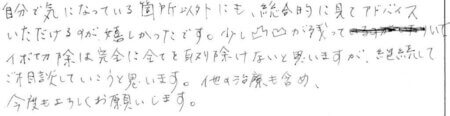 自分で気になっている箇所以外にも、総合的に見てアドバイス
いただけるのが嬉しかったです。少し凸凹が残って いて
イボ切除は完全に全てを取り除けないと思いますが、継続して
ご相談していこうと思います。他の治療も含め、
今後もよろしくお願いします。